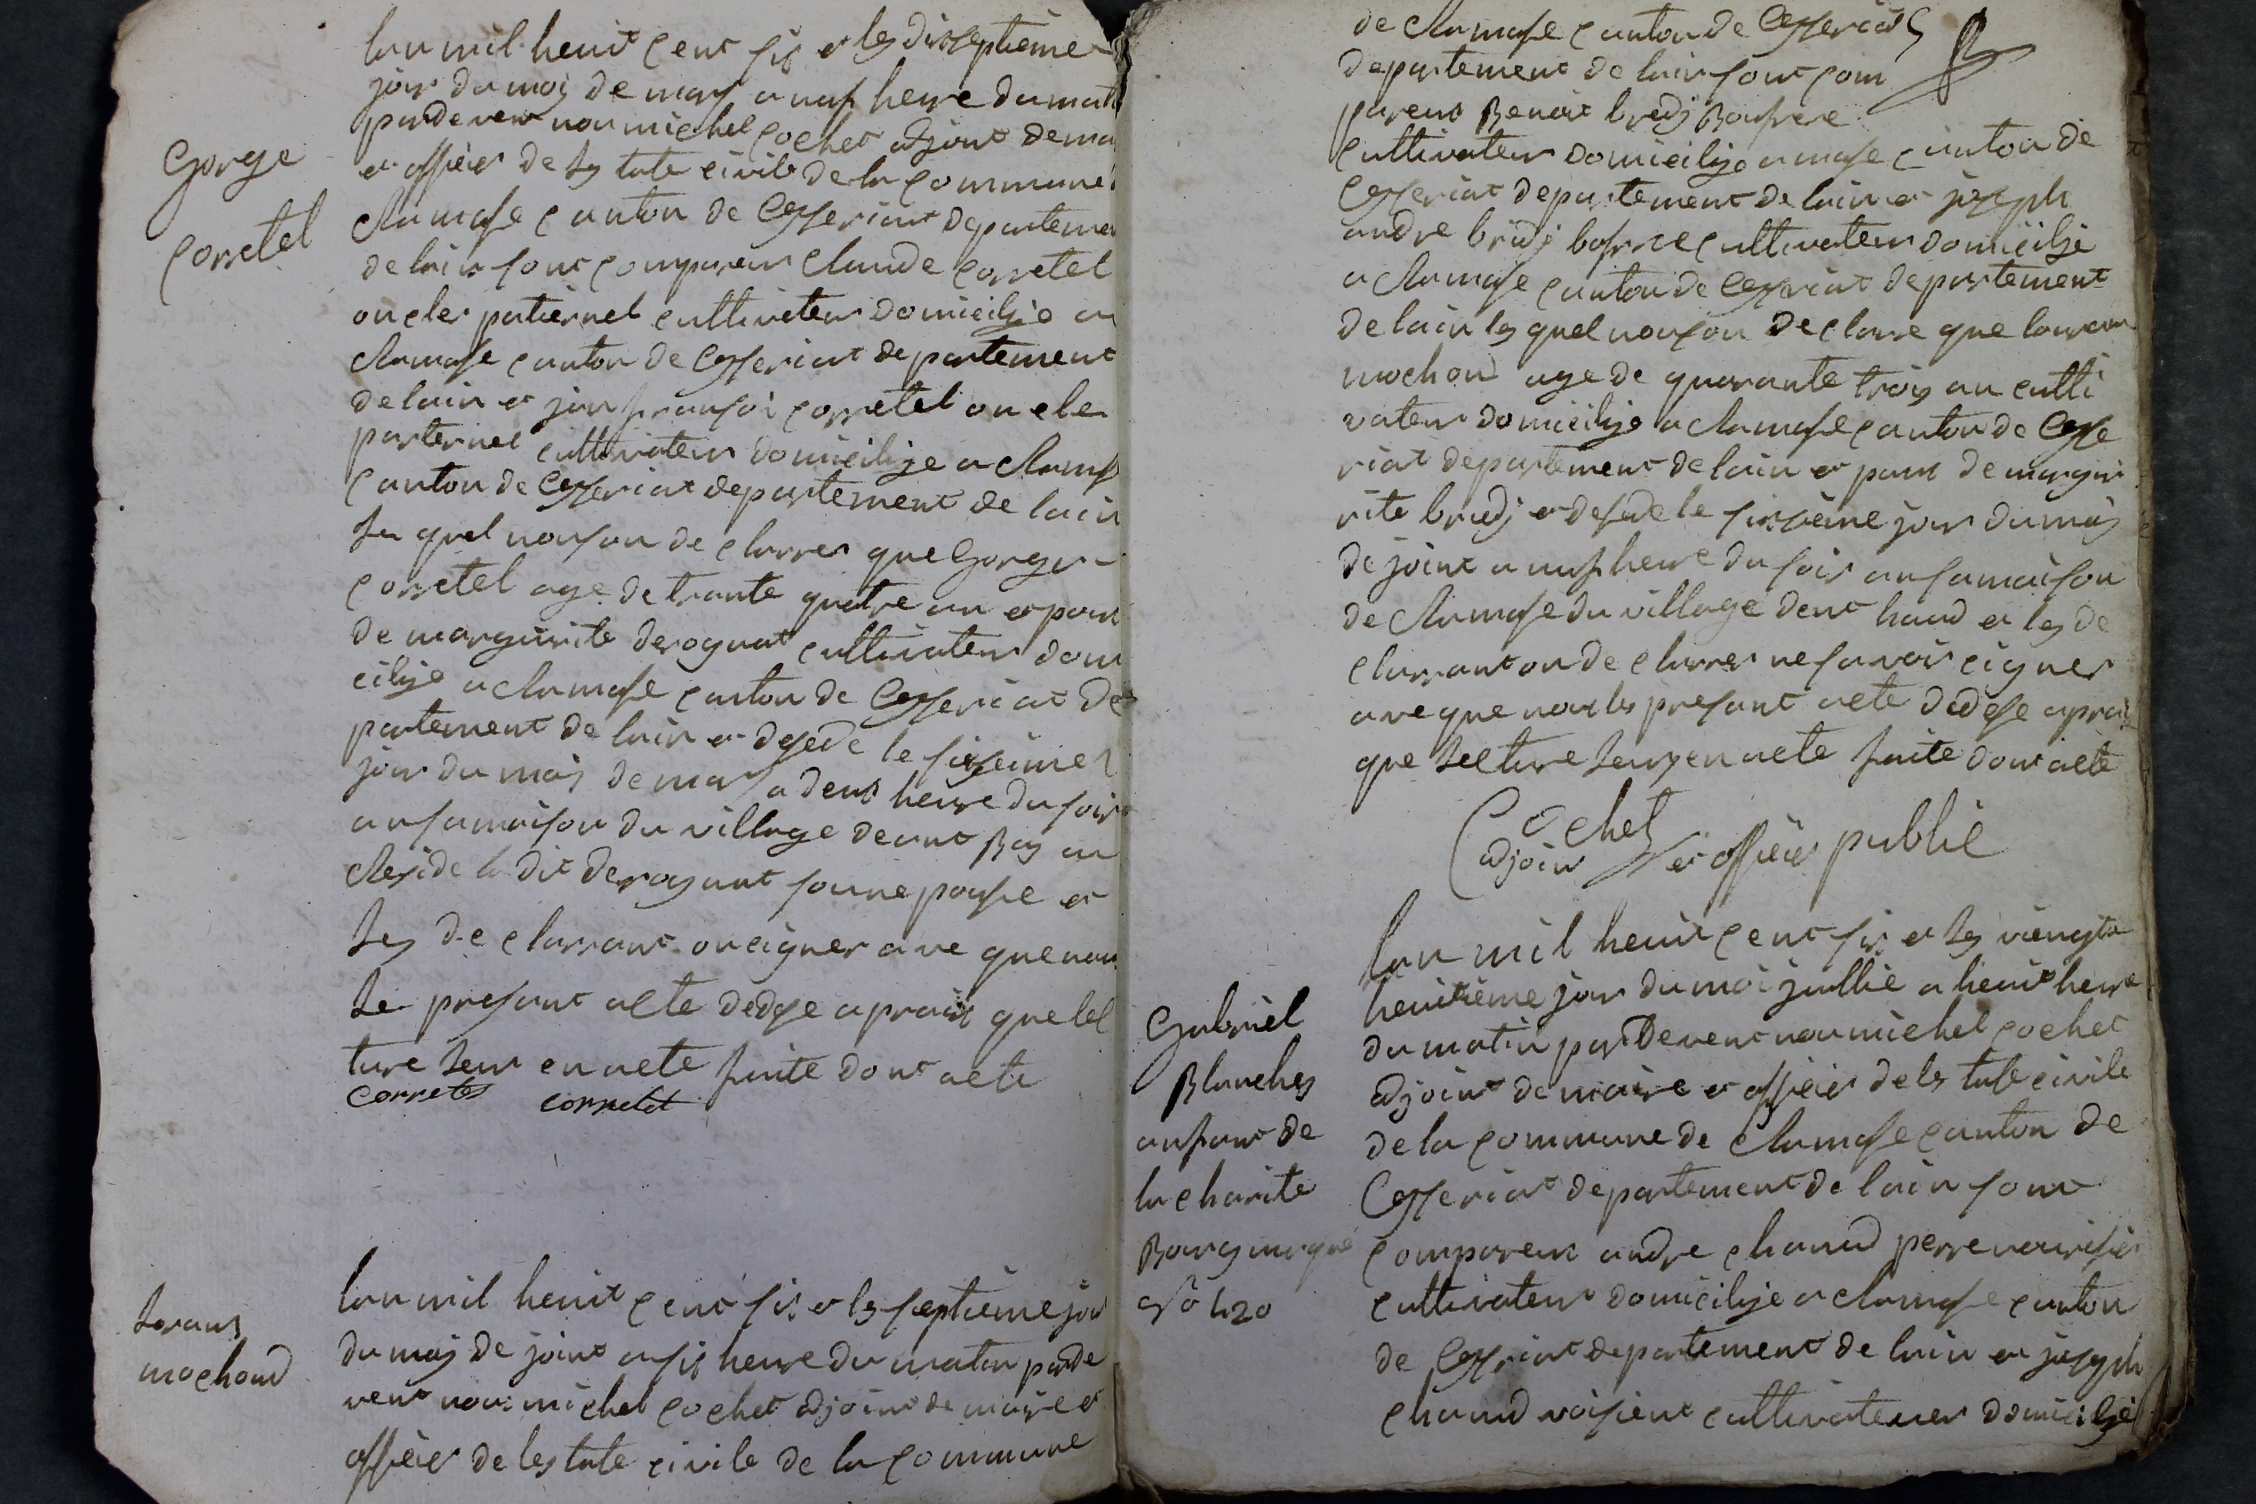 Gorge
Corretel
lan mil heuit cent sis et les disseptieme
jour du mois de mars a nuf heure du mat
par devent nou michel Cochet adjoint de ma
et offiêier de les tate civile de la commune
clamase canton de Cesseriat departemen
de lain sont comparein claude corretel
oncles patiernel cultivateur domicilije a
clamase canton de Cesseriat departement
de lain et jan fransoi corretel oncle
parternel cultivateur domicilije a clamas
canton de Cesseriat departement de lain
les quel nouson declarrer que Gorger
corretel age de trante quatre an et poux
de margurite derognat cultivateur domi
cilije a clamase canton de Cesseriat de
partement de lain et desede le sisieime
jour du mois de mars a deus heure du soir
an sa maison du village deant Bas an
cleside la dit derognant soune pouse et
les declarrant on cigner ave que nou
le presant acte dedese apraix que lec
ture leur en aete faite dont acte
corretel corretel
lorans
mochond
lan mil heuit cent sis et les septieme jour
du mois de joint a sis heure du matin parde
vent nou michel cochet adjoint de maire et
offièier de les tate civile de la commune
de clamase canton de Cesseriat
departement de lain sont com
parens Benoit bredj Baufrere
cultivateur domicilije a mase canton de
Cesseriat departement de lain et joseph
andre bredj bofrere cultivateur domicilije
a clamase canton de Cesseriat departement
de lain les quel nouson declare que lauran
mochon age de quarante trois an culti
vateur domicilije a clamase canton de Cesse
riat departement de lain et poux de margui
rite bredj et desede le sissieme jour du mois
de joint a nuf heure du soir an sa maison
de clamase du village dent haud et les de
clarrant on declarrer ne savoir cigner
aveque nou les presant acte dedese aprai
que lecture leurs en aete faite dont acte
Cochet
adjoin et offièier public
Gabriel
Blanches
anfant de
la charite
Bourg marqué
nº 420
lan mil heuit cent sis et les viengte
heuitieme jour du moi juillie a heuit heure
du matin par Devent nou michel cochet
adjoint de maire et offièier de les tate civile
de la commune de clamase canton de
Cesseriat departement de lain sont
comparein andre chanud perre nourisier
cultivateur domicilije a clamase canton
de Cesseriat departement de lain et joseph
chanud voisient cultivateuer domicilije